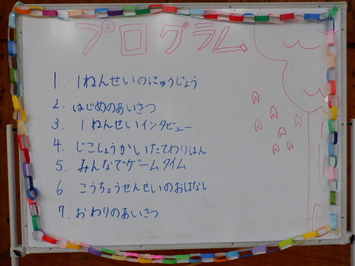 プログラム
1. 1ねんせいのにゅうじょう
2. はじめのあいさつ
3. 1ねんせいインタビュー
4. じこしょうかいたてわりはん
5. みんなでゲームタイム
6 こうちょうせんせいのおはなし
7. おわりのあいさつ